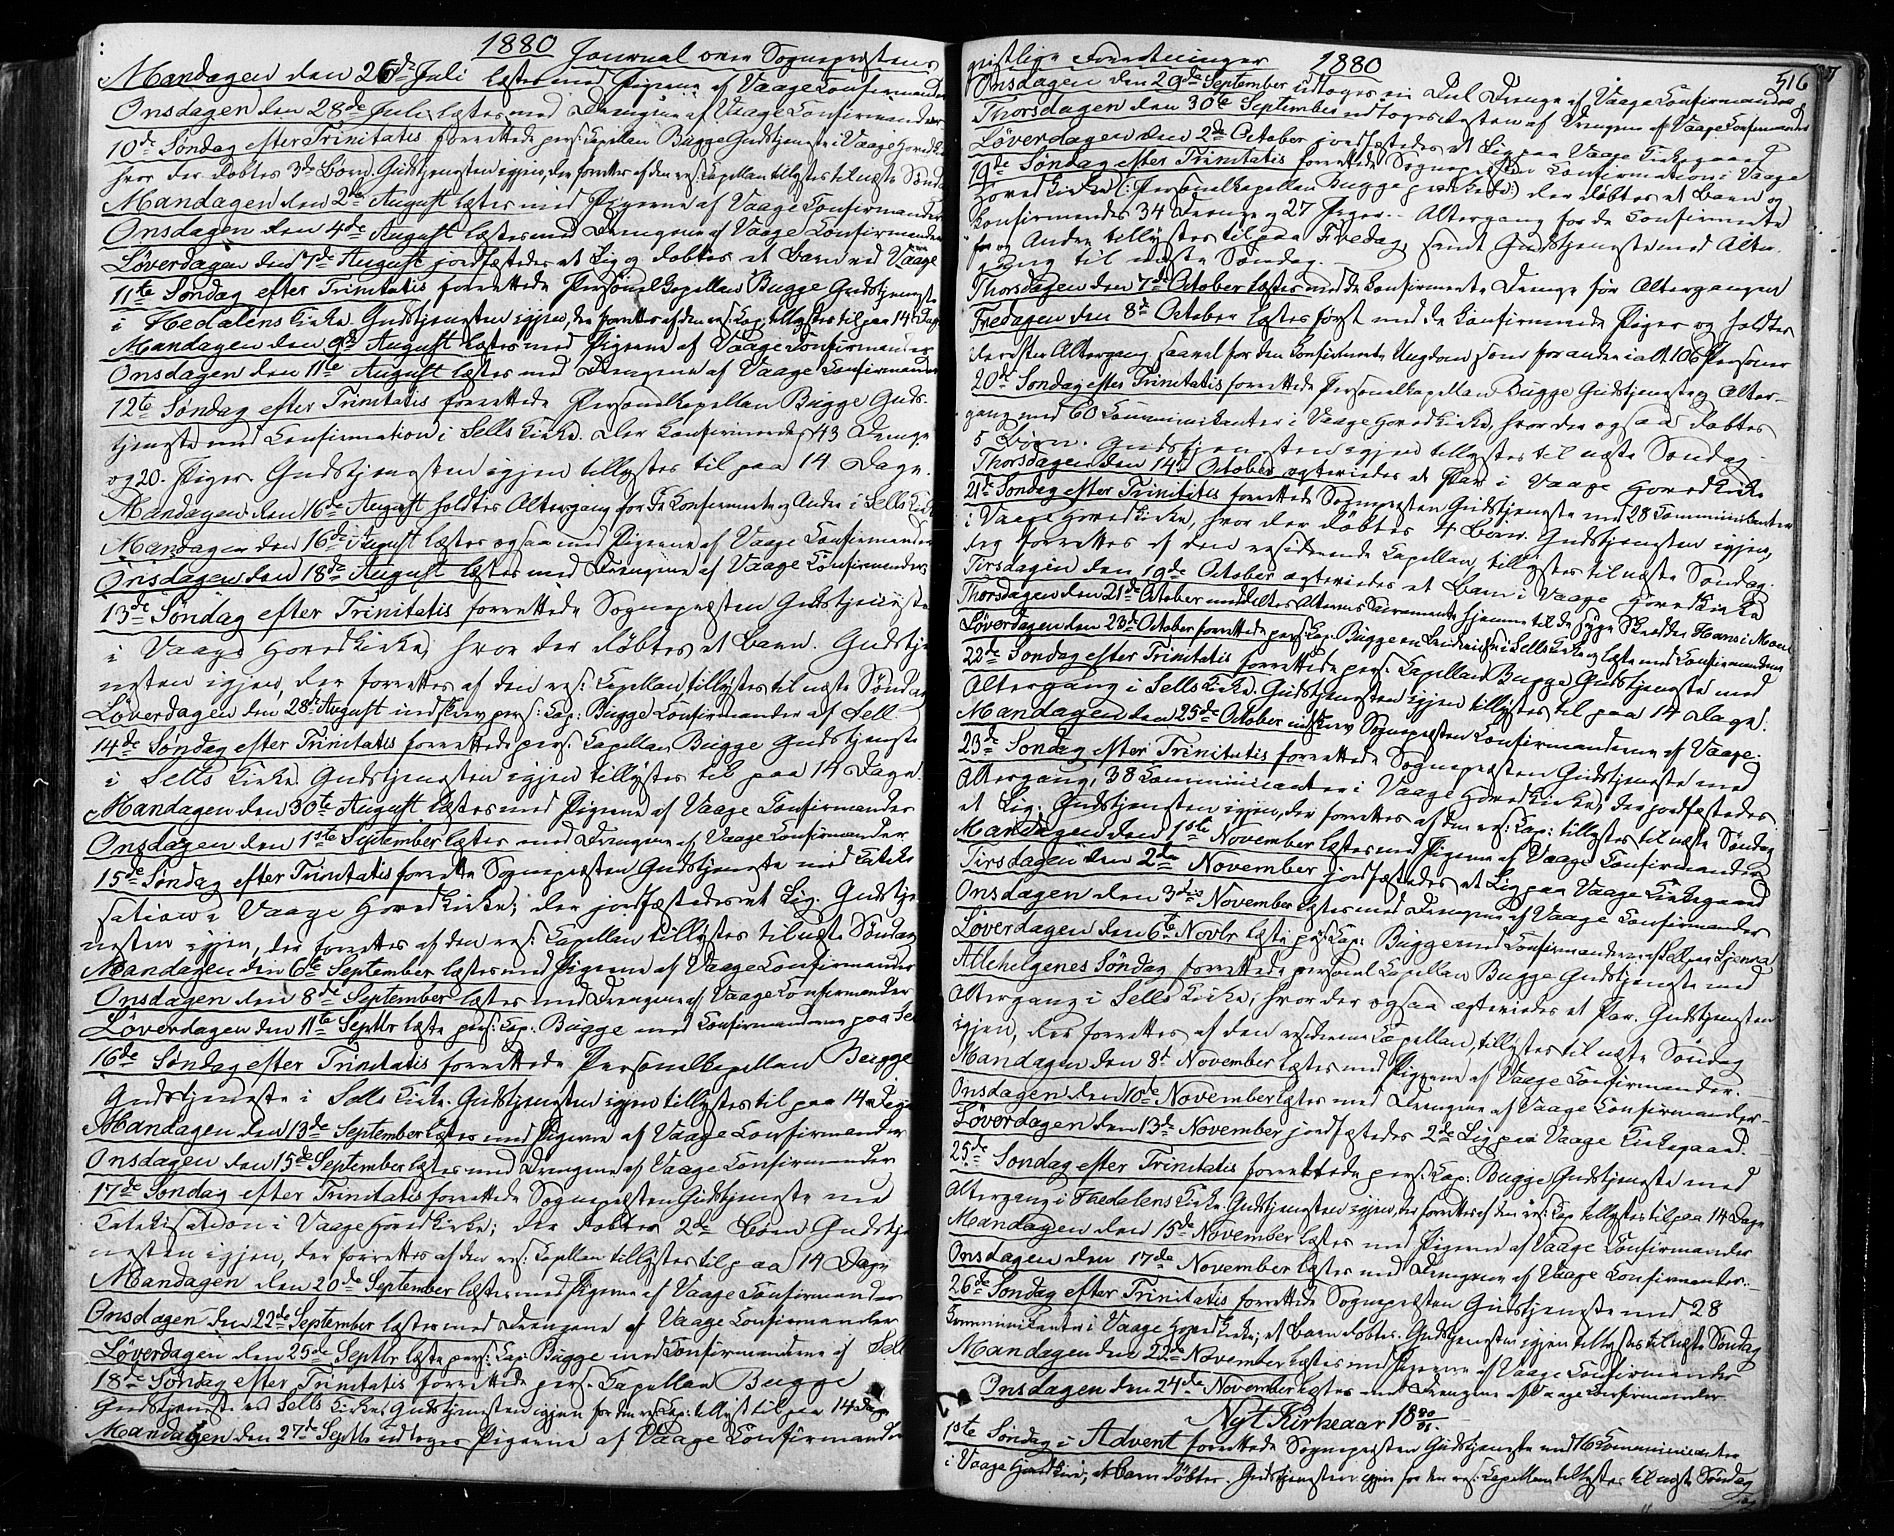 1880 Journal over Sognepræstens
Mandagen den 26de Juli læstes med Pigerne af Vaage Confirmander
Onsdagen den 28de Juli læstes med Drengene af Vaage Confirmander
10de Søndag efter Trinitatis forrettede pers: Capellan Bugge Gudstjeneste i Vaage Hovedkirke
hvor der døbtes 3de Børn. Gudstjenesten igjen, der forrettes af den res: Capellan tillystes til næste Søndag
Mandagen den 2den August læstes med Pigerne af Vaage Confirmander
Onsdagen den 4de August læstes med Drengene af Vaage Confirmander
Løverdagen den 7de August jordfæstedes et Lig og døbtes et Barn ved Vaage
11te Søndag efter Trinitatis forrettede Personelkapellan Bugge Gudstjeneste
i Hedalens Kirke. Gudstjenesten igjen, der forrettes af den res: Cap: tillystes til paa 14 Dage
Mandagen den 9de August læstes med Pigerne af Vaage Confirmander
Onsdagen den 11te August læstes med Drengene af Vaage Confirmander
12te Søndag efter Trinitatis forrettede Personelkapellan Bugge Guds-
tjeneste med Confirmation i Sells Kirke. Der confirmeredes 43 Drenge
og 20 Piger. Gudstjenesten igjen tillystes til paa 14 Dage.
Mandagen den 16de August holdtes Altergang for de Konfirmerte og Andre i Sells Kirke
Mandagen den 16de August læstes ogsaa med Pigerne af Vaage Confirmander
Onsdagen den 18de August læstes med Drengene af Vaage Confirmander
13de Søndag efter Trinitatis forrettede Sognepræsten Gudstjeneste
i Vaage Hovedkirke, hvor der døbtes et Barn. Gudstje
nesten igjen, der forrettes af den res: Capellan tillystes til næste Søndag
Løverdagen den 28de August indskrev pers: Cap: Bugge Confirmander af Sell.
14de Søndag efter Trinitatis forrettede pers: Capellan Bugge Gudstjeneste
i Sells Kirke. Gudstjenesten igjen tillystes til paa 14 Dage
Mandagen den 30te August læstes med Pigerne af Vaage Confirmander
Onsdagen den 1ste September læstes med Drengene af Vaage Confirmander
15de Søndag efter Trinitatis forrette Sognepræsten Gudstjeneste med Kateki
sation i Vaage Hovedkirke; der jordfæstedes et Lig. Gudstje
nesten igjen, der forrettes af den res: Capellan tillystes til næste Søndag
Mandagen den 6te September læstes med Pigerne af Vaage Confirmander
Onsdagen den 8de September læstes med Drengene af Vaage Confirmander
Løverdagen den 11te Septbr læste pers: Cap: Bugge med Confirmanderne paa Sel
16de Søndag efter Trinitatis forrettede Personelkapellan Bugge
Gudstjeneste i Sells Kirke. Gudstjenesten igjen tillystes til paa 14 Dage
Mandagen den 13de September læstes med Pigerne af Vaage Confirmander
Onsdagen den 15de September læstes med Drengene af Vaage Confirmander
17de Søndag efter Trinitatis forrettede Sognepræsten Gudstjeneste med
Katekisation i Vaage Hovedkirke; der døbtes 2de Børn Gudstje
nesten igjen, der forrettes af den res: Capellan tillystes til paa 14 Dage
Mandagen den 20de September læstes med Pigerne af Vaage Confirmander
Onsdagen den 22de September læstes med Drengene af Vaage Confirmander
Løverdagen den 25de Septbr læste pers: Cap: Bugge med Confirmanderne af Sell
18de Søndag efter Trinitatis forrettede pers: Capellan Bugge
Gudstjeneste ved Sells Kirke, Gudstjenesten igjen for den res: Cap: tillyst til paa 14 Dage
Mandagen den 27de Septbr udtoges Pigerne af Vaage Confirmander
geistlige Forretninger 1880 516
Onsdagen den 29de September udtoges en Del Drenge af Vaage Confirmander
Thorsdagen den 30te September udtoges Resten af Drengene af Vaage Confirmander
Løverdagen den 2de October jordfæstedes et Lig paa Vaage Kirkegaard
19de Søndag efter Trinitatis forrettede Sognepræsten Confirmation i Vaage
Hovedkirke (: Personelkapellan Bugge prækede:) der døbtes et Barn og
Konfirmeredes 34 Drenge og 27 Piger. – Altergang for de Confirmerte
og Andre tillystes til paa Fredag, samt Gudstjeneste med Alter
gang til næste Søndag. –
Thorsdagen den 7de October læstes med de konfirmerte Drenge før Altergangen
Fredagen den 8de October læstes først med de konfirmerede Piger og holdtes
derefter Altergang saavel for den konfirmerte Ungdom som for andre i alt 106 Personer
20de Søndag efter Trinitatis forrettede Personelkapellan Bugge Gudstjeneste og Alter-
gang med 60 Communikanter i Vaage Hovedkirke, hvor der ogsaa døbtes
5 Børn. Gudstjenesten igjen tillystes til næste Søndag.
Thorsdagen den 14de October ægteviedes et Par i Vaage Hovedkirke
21de Søndag efter Trinitatis forrettede Sognepræsten Gudstjeneste med 28 Communikanter
i Vaage Hovedkirke, hvor der døbtes 4 Børn. Gudstjenesten igjen,
der forrettes af den residerende Capellan, tillystes til næste Søndag.
Tirsdagen den 19de October ægteviedes et Barn i Vaage Hovedkirke
Thorsdagen den 21de October meddeltes Alterens Sacramente hjemme til de syge Skrædder Hans i Moen
Løverdagen den 23de October forrettede pers: Cap: Bugge en i Sells Kirke og læste med Confirmanderne
22de Søndag efter Trinitatis forrettede pers: Capellan Bugge Gudstjeneste med
Altergang i Sells Kirke. Gudstjenesten igjen tillystes til paa 14 Dage.
Mandagen den 25de October indskrev Sognepræsten Confirmanderne af Vaage.
23de Søndag efter Trinitatis forrettede Sognepræsten Gudstjeneste med
Altergang, 38 Communicanter i Vaage Hovedkirke; der jordfæstedes
et Lig. Gudstjenesten igjen, der forrettes af den res: Cap: tillystes til næste Søndag
Mandagen den 1ste November læstes med Pigerne af Vaage Confirmander
Tirsdagen den 2den November jordfæstedes et Lig paa Vaage Kirkegaard
Onsdagen den 3die November læstes med Drengene af Vaage Confirmander
Løverdagen den 6te Novbr læste pers: Cap: Bugge med Confirmanderne af Sell paa
Allehelgenes Søndag forrettede personel Capellan Bugge Gudstjeneste med
Altergang i Sells Kirke, hvor der ogsaa ægteviedes et Par. Gudstjenesten
igjen, der forrettes af den residerende Capellan, tillystes til næste Søndag
Mandagen den 8de November læstes med Pigerne af Vaage Confirmander.
Onsdagen den 10de November læstes med Drengene af Vaage Confirmander –
Løverdagen den 13de November jordfæstedes 2de Lig paa Vaage Kirkegaard.
25de Søndag efter Trinitatis forrettede pers: Cap: Bugge Gudstjeneste med
Altergang i Hedalens Kirke. Gudstjenesten igjen, der forrettes af den res: Cap tillystes til paa 14 Dage
Mandagen den 15de November læstes med Pigerne af Vaage Confirmander
Onsdagen den 17de November læstes med Drengene af Vaage Confirmander.
26de Søndag efter Trinitatis forrettede Sognepræsten Gudstjeneste med 28
Communicanter i Vaage Hovedkirke; et Barn døbtes. Gudstjenesten igjen tillystes til næste Søndag
Mandagen den 22de November læstes med Pigerne af Vaage Confirmander
Onsdagen den 24de November læstes med Drengene af Vaage Confirmander
Nyt Kirkeaar 1880/81.
1ste Søndag i Advent forrettede Sognepræsten Gudstjeneste med 16 Communicanter
i Vaage Hovedkirke, et Barn døbtes. Gudstjenesten igjen for den res: Capellan tillystes til næste Søndag